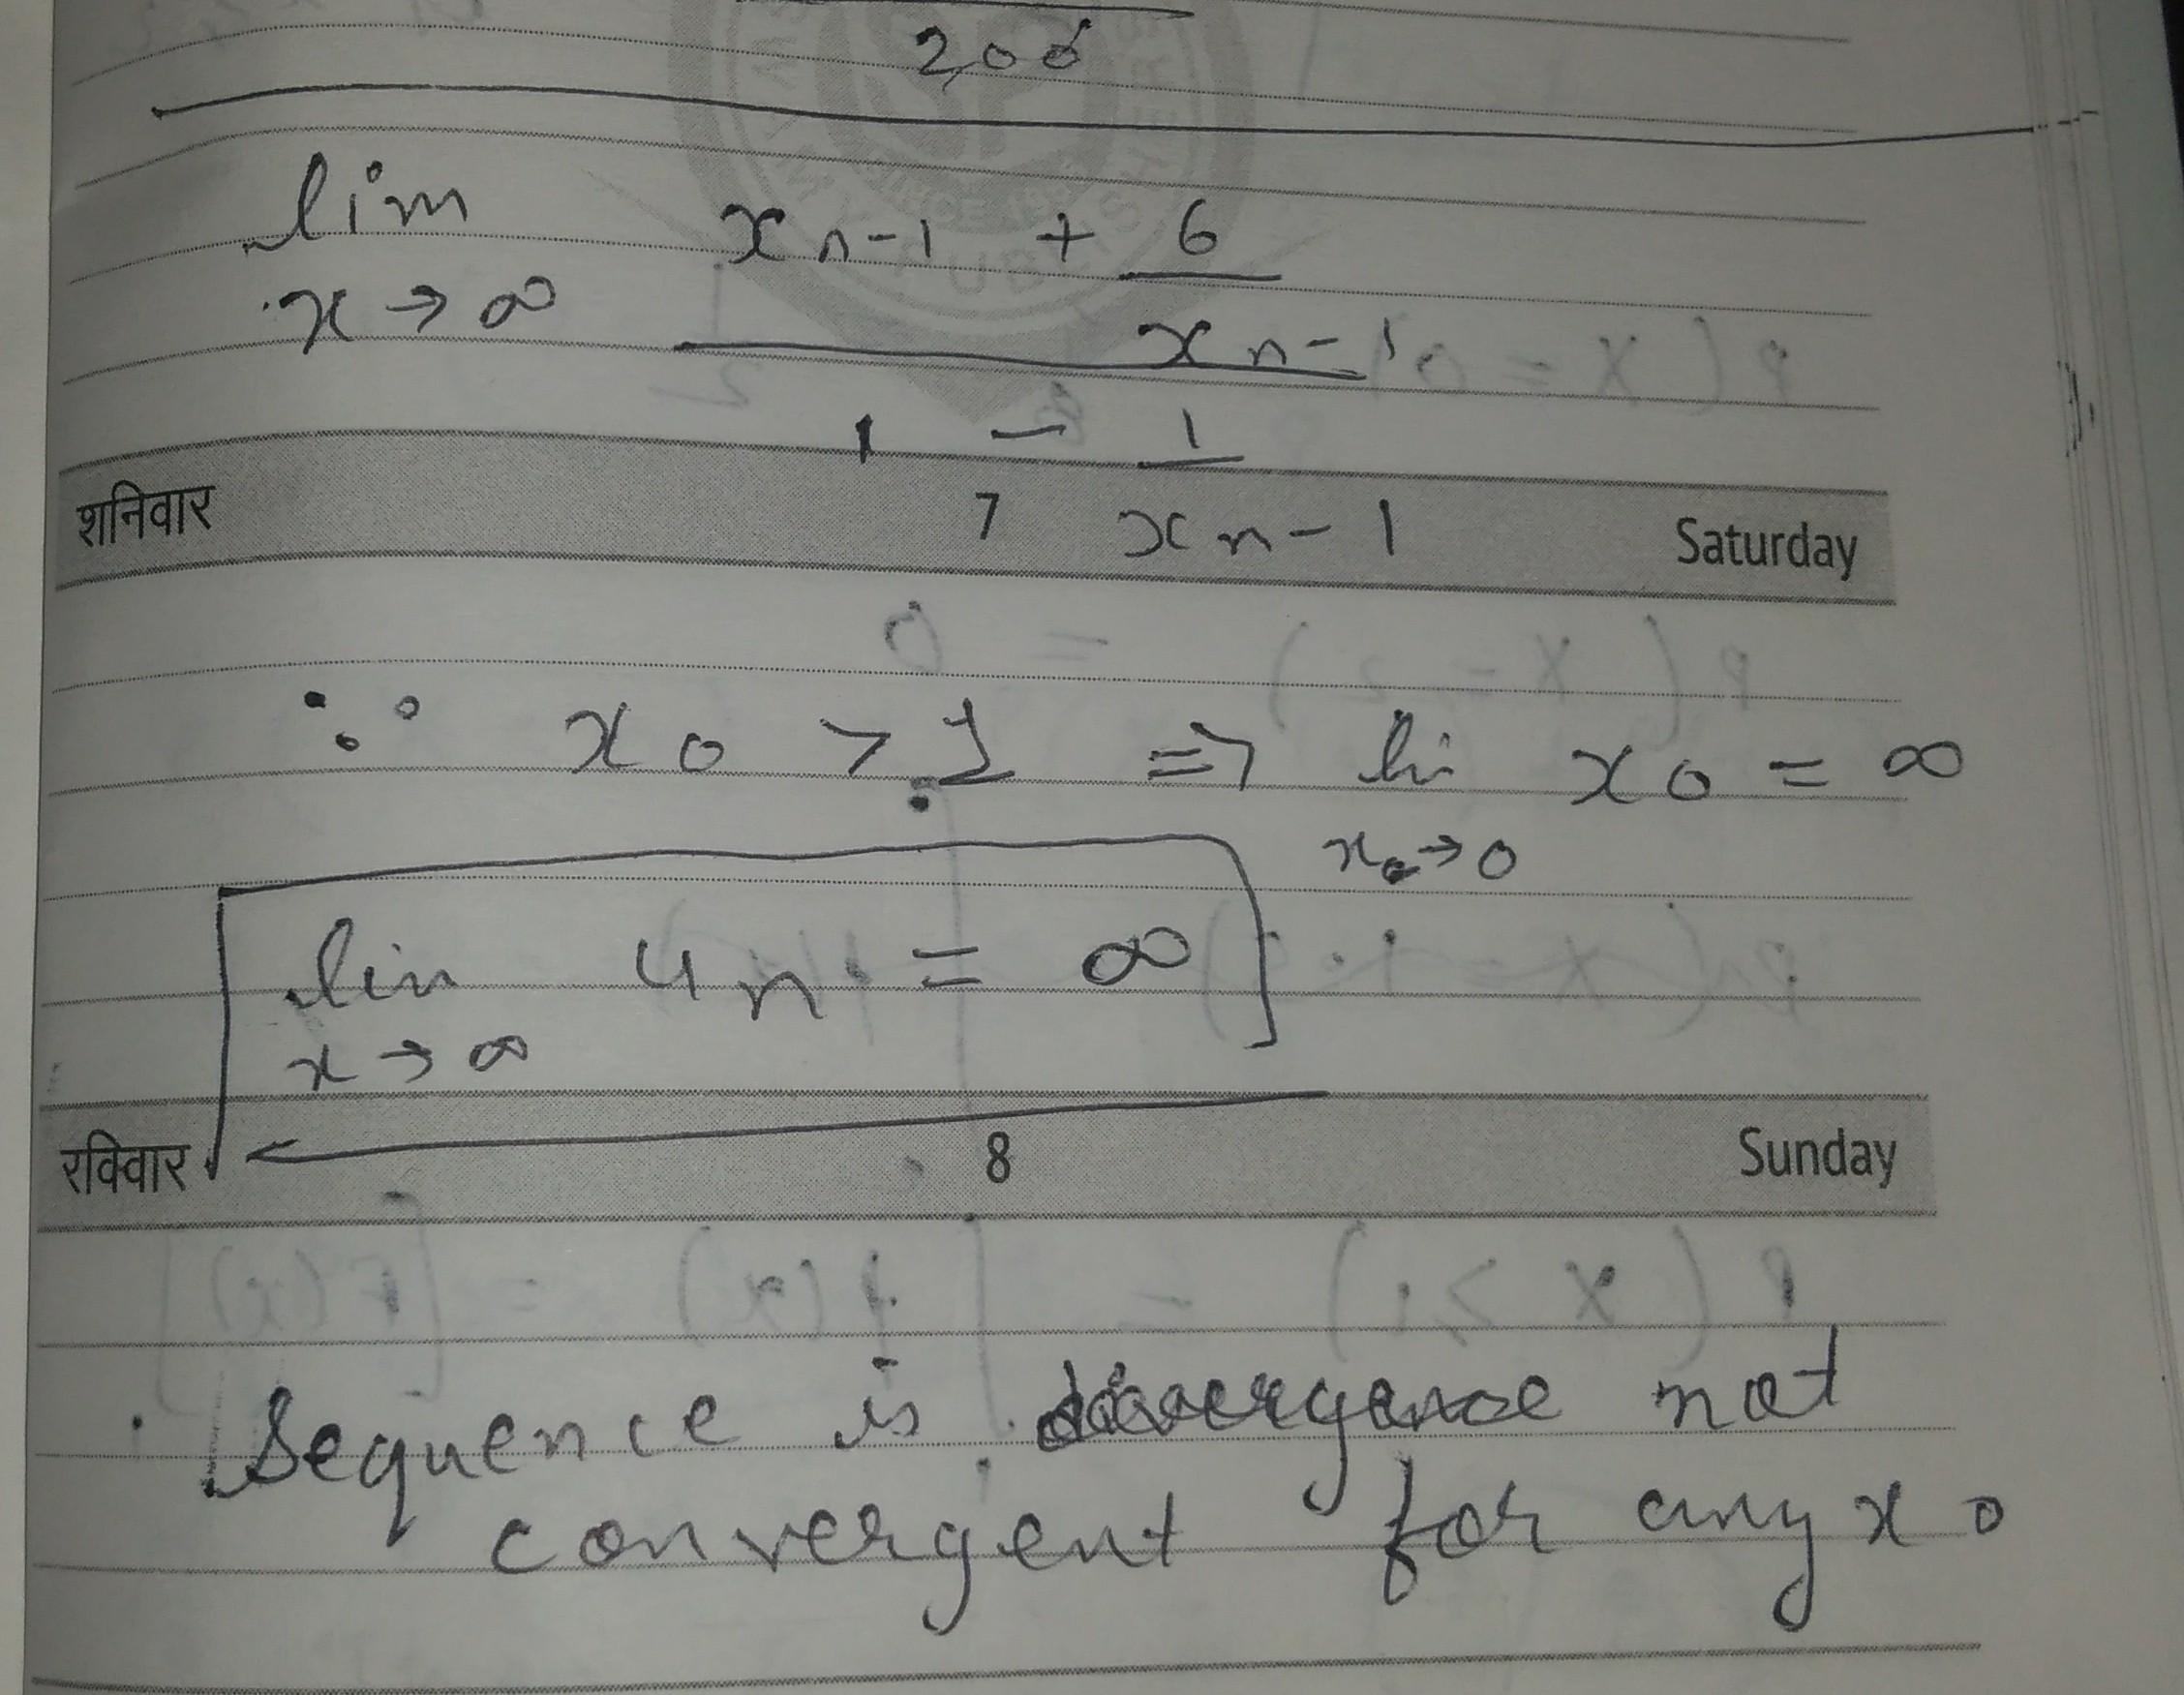 200
lim x n-1 + 6
x → ∞ x n-1
1 - 1
शनिवार 7 x n-1 Saturday
∵ x0 > 1 => li x0 = ∞
x0 → 0
lim un = ∞
x → ∞
रविवार 8 Sunday
Sequence is divergence not
convergent for any x0